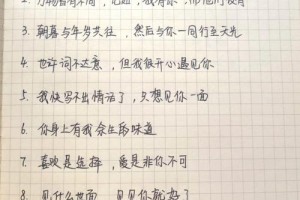 2. 万物皆有不同, 我有你, 而他们没有
3. 朝暮与年岁共往, 然后与你一同行至天光
4. 也许词不达意, 但我很开心遇见你
5. 我快写不出情话了, 只想见你一面
6. 你身上有我余生的味道
7. 喜欢是选择, 爱是非你不可
8. 见什么世面, 见见你就好了